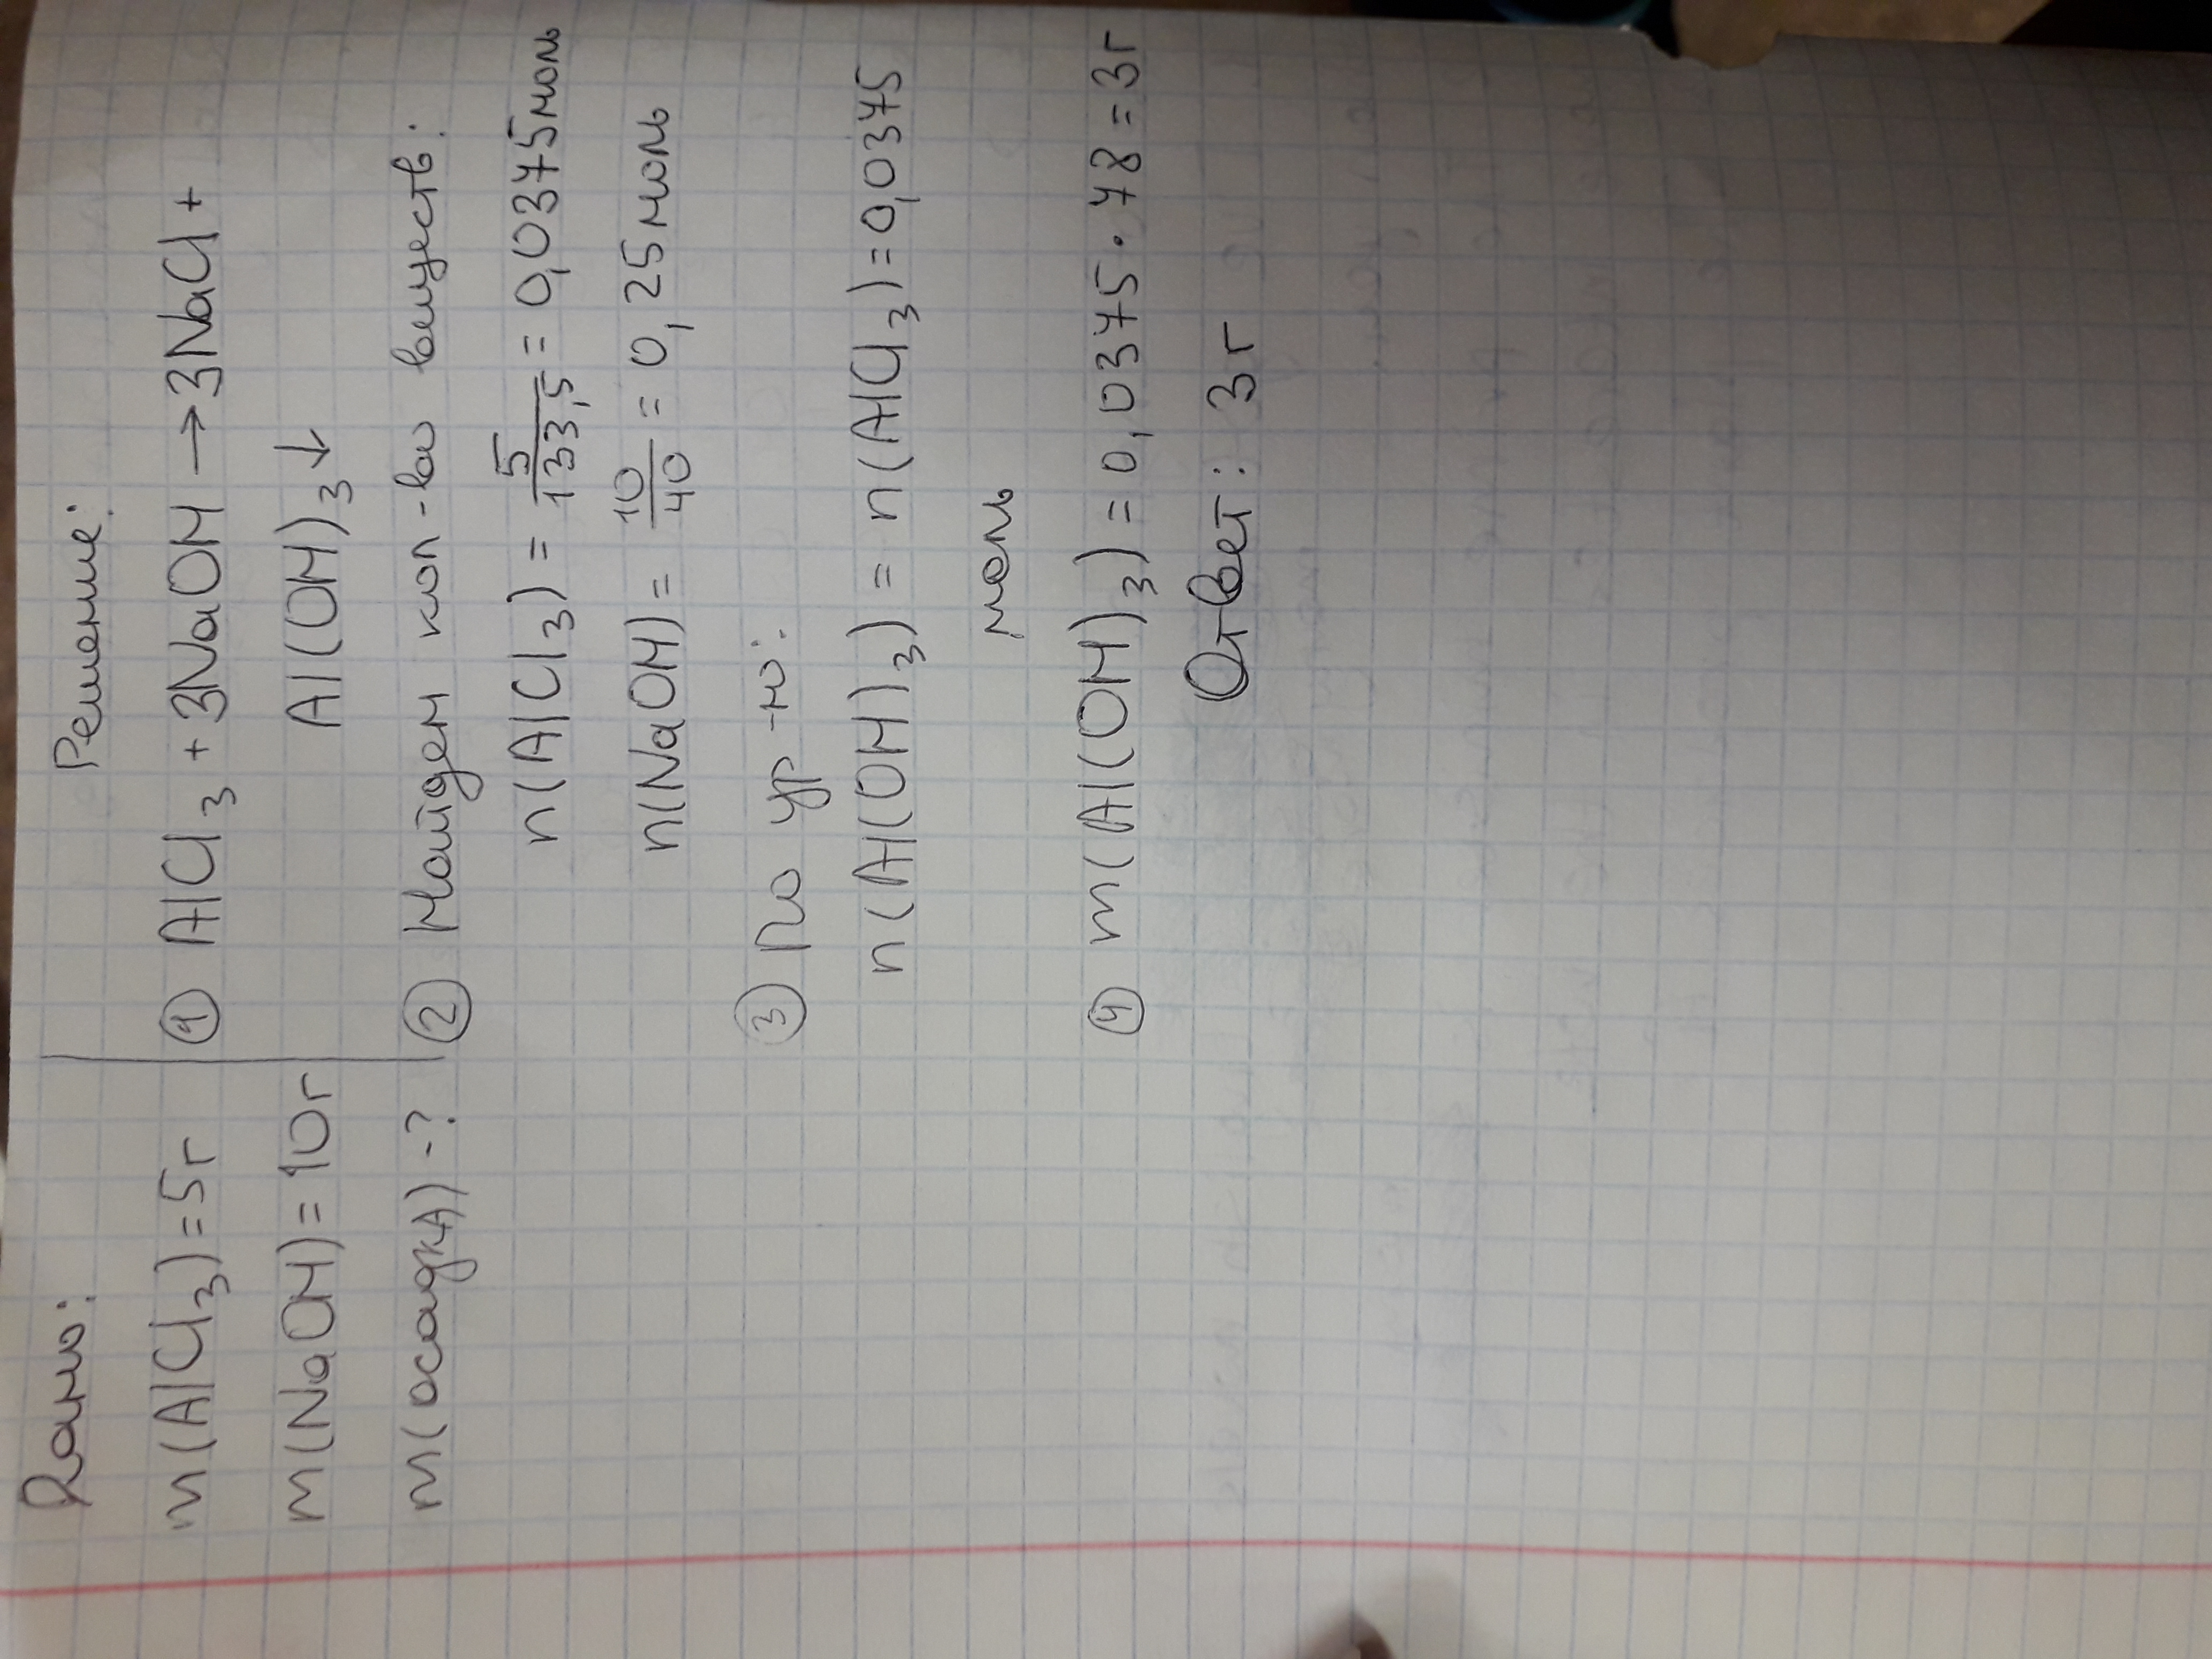 Дано:
m(AlCl3)=5г
m(NaOH)=10г
m(осадкА)-?
Решение:
① AlCl3 + 3NaOH → 3NaCl +
Al(OH)3↓
② Найдем кол-во веществ:
n(AlCl3) = 5/133,5 = 0,0375 моль
n(NaOH) = 10/40 = 0,25 моль
③ По ур-ю:
n(Al(OH)3) = n(AlCl3) = 0,0375
моль
④ m(Al(OH)3) = 0,0375 · 78 = 3г
Ответ: 3г